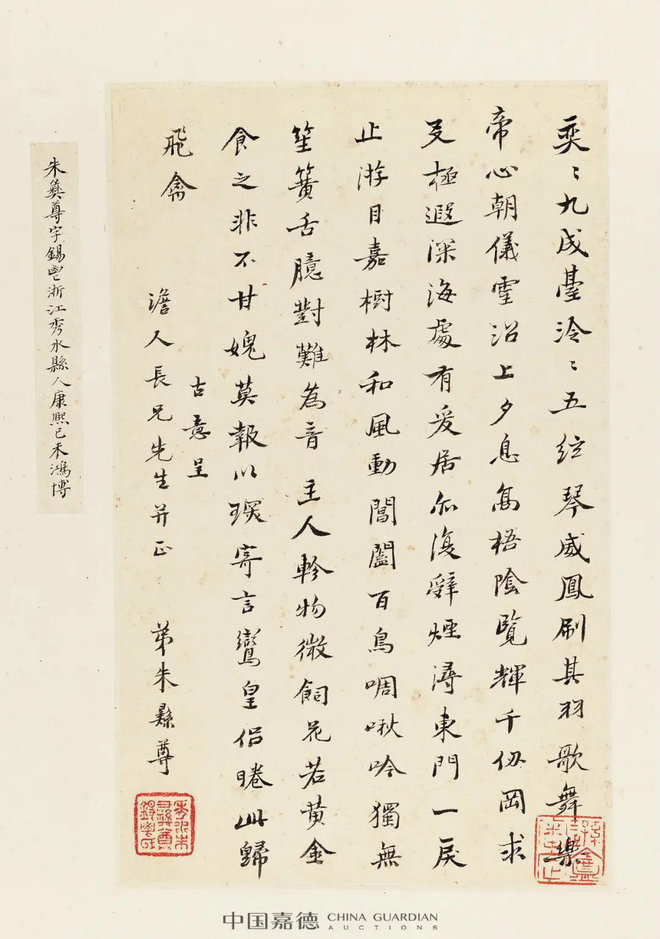 奕〻九成臺泠〻五絃琴威鳳刷其羽歌舞樂
帝心朝儀靈沼上夕息高梧陰覽輝千仞岡求
友極遐深海處有爰居亦復辭煙潯東門一戾
止游目嘉樹林和風動閶闔百鳥啁啾吟獨無
笙簧舌臆對難為音主人軫物微飼花若黃金
食之非不甘媿莫報以琛寄言鸞皇侶睠此歸
飛禽
古意呈
澹人長兄先生并正 弟朱彝尊
朱彝尊字錫鬯浙江秀水縣人康熙己未鴻博
中国嘉德 CHINA GUARDIAN
AUCTIONS